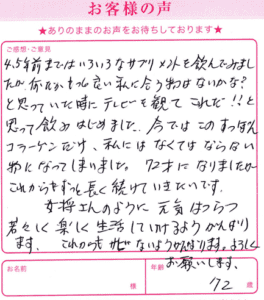 お客様の声
★ありのままのお声をお待ちしております★
ご感想・ご意見
4、5年前まではいろいろなサプリメントを飲んでみまし
たが、何だか、もっと良い私に合う物はないかな?
と思っていた時にテレビを観てこれだ!!と
思って飲みはじめました。今ではこのすっぽん
コラーゲンだけ、私にはなくてはならない
物になってしまいました。72才になりましたが
これからもずっと長く続けていきたいです。
女将さんのように元気はつらつ
若々しく楽しく生活していけるようがんばり
ます。これからも ないようがんばります。よろしく
お願いします。
お名前
様
年齢
72 歳